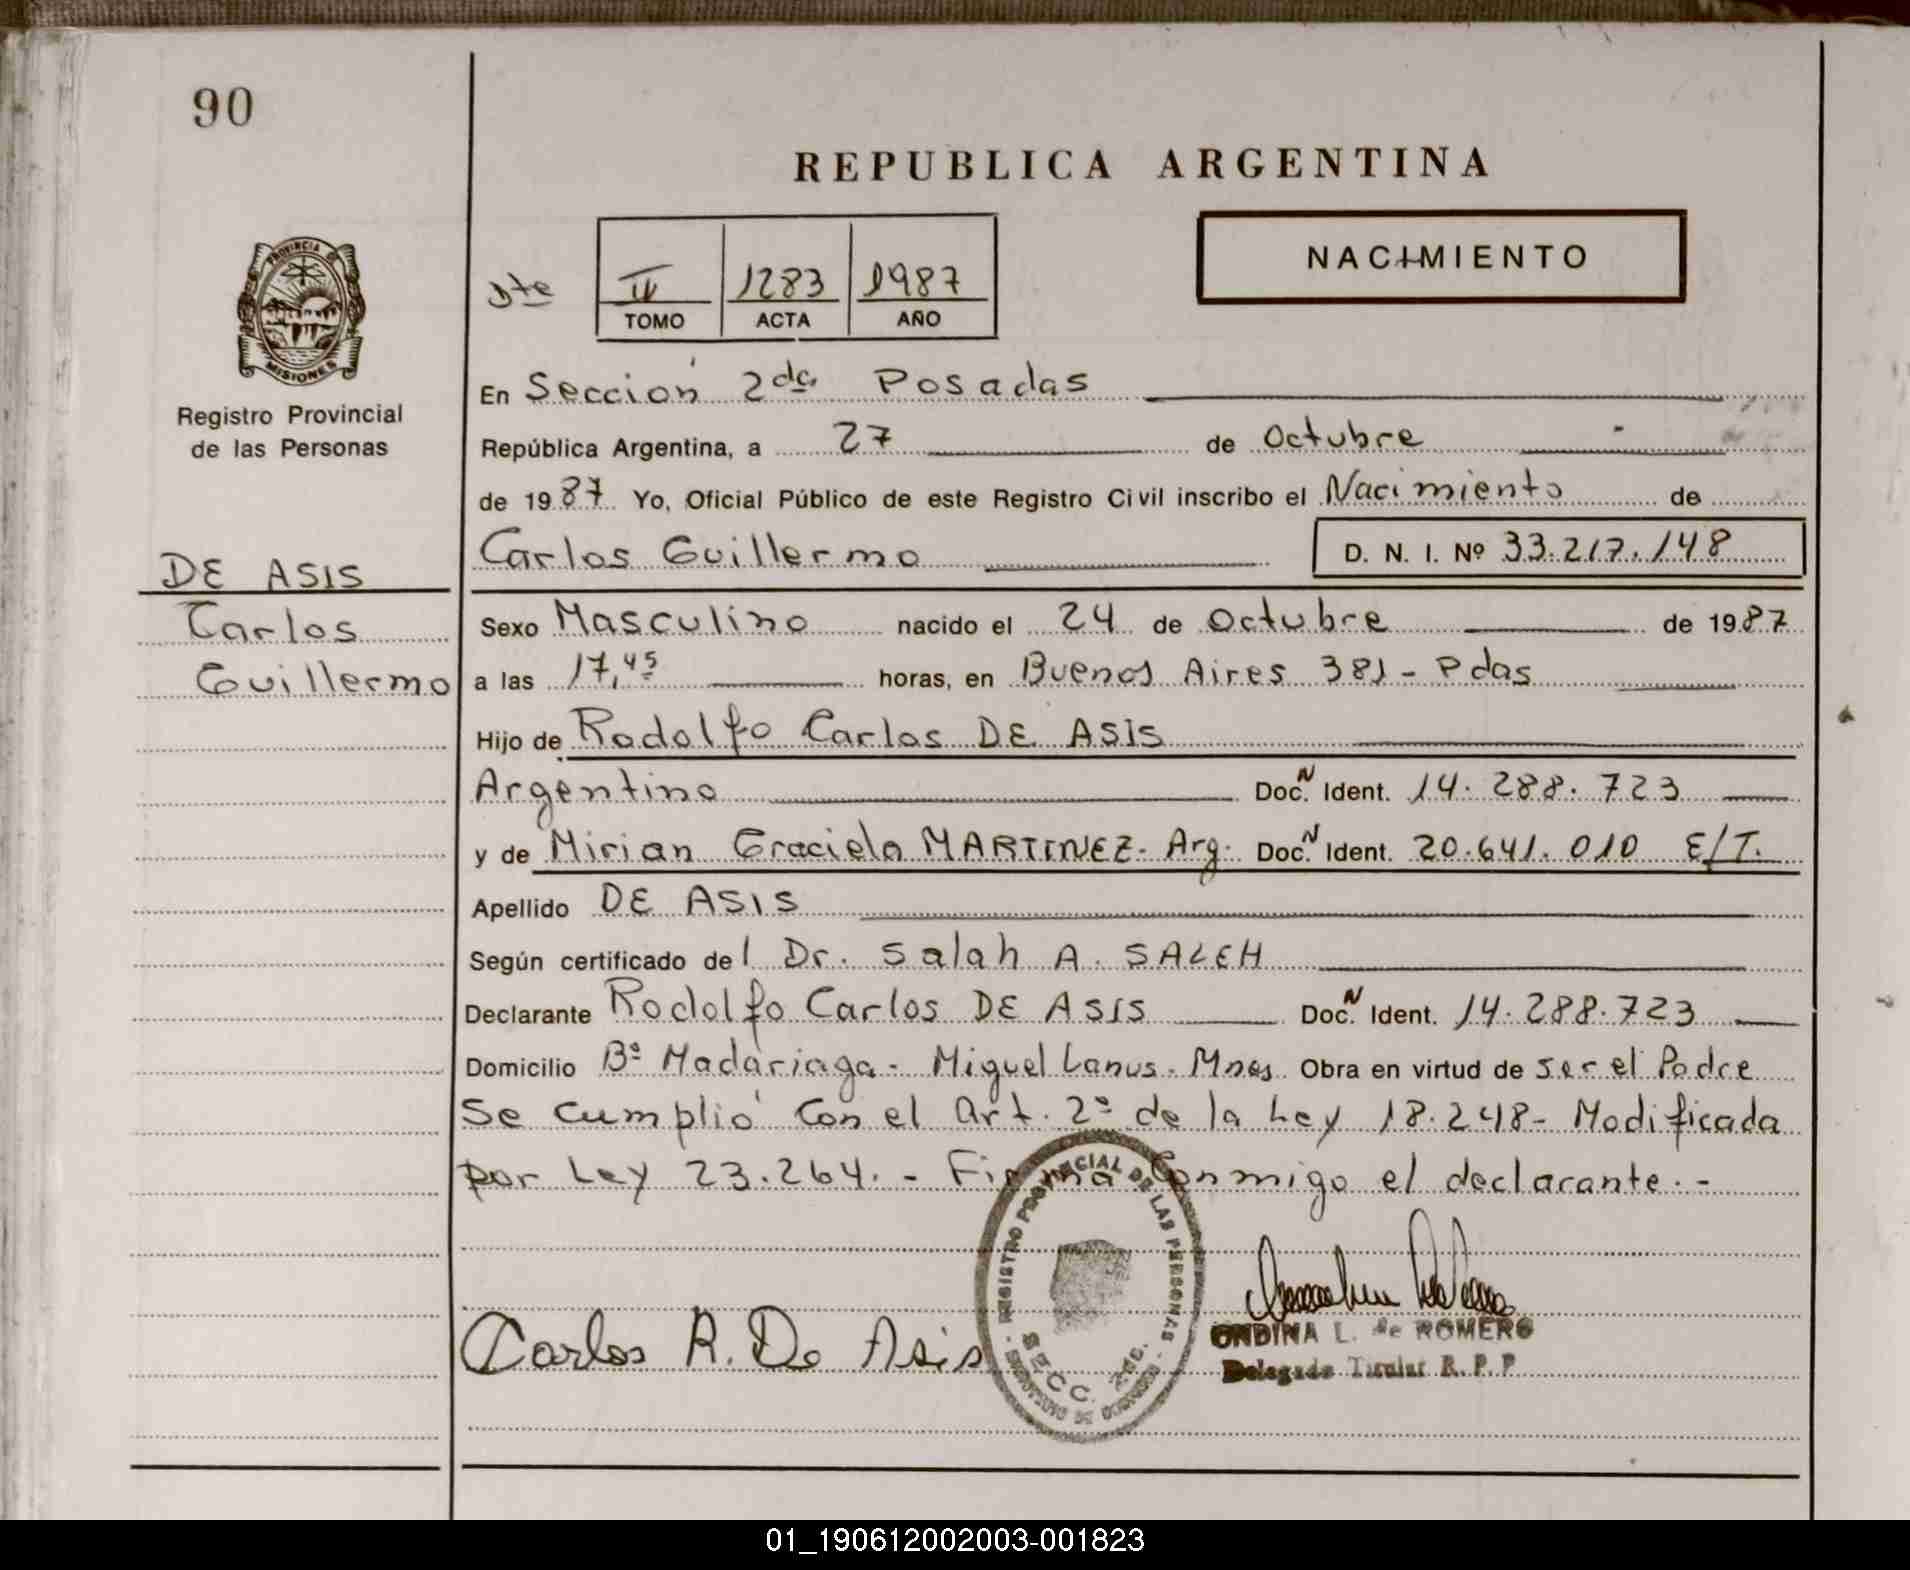 90
REPUBLICA ARGENTINA
PROVINCIA DE
MISIONES
Registro Provincial
de las Personas
Dte
II 1283 1987
TOMO ACTA AÑO
NACIMIENTO
En Sección 2da Posadas
República Argentina, a 27 de Octubre
de 1987 Yo, Oficial Público de este Registro Civil inscribo el Nacimiento de
Carlos Guillermo D. N. I. Nº 33.217.148
DE ASIS
Carlos
Guillermo
Sexo Masculino nacido el 24 de Octubre de 1987
a las 17,45 horas, en Buenos Aires 381 - Pdas
Hijo de Rodolfo Carlos DE ASIS
Argentino Doc. N Ident. 14.288.723
y de Mirian Graciela MARTINEZ. Arg. Doc. N Ident. 20.641.010 E/T.
Apellido DE ASIS
Según certificado del Dr. Salah A. SALEH
Declarante Rodolfo Carlos DE ASIS Doc. N Ident. 14.288.723
Domicilio Bº Madariaga - Miguel Lanus. Mnes Obra en virtud de ser el Padre
Se cumplió con el art. 2º de la Ley 18.248 - Modificada
por Ley 23.264. - Firma Conmigo el declarante. -
REGISTRO PROVINCIAL DE LAS PERSONAS
SECC. 2da.
Carlos R. De Asis
ONDINA L. de ROMERO
Delegada Titular R. P. P
01_190612002003-001823